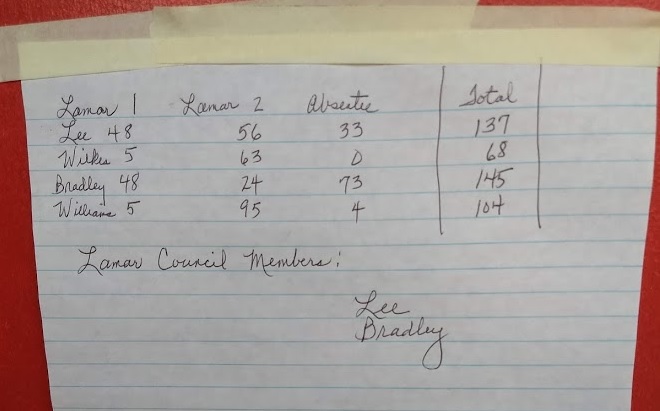 Lamar 1 Lamar 2 Absentee Total
Lee 48 56 33 137
Wilkes 5 63 0 68
Bradley 48 24 73 145
Williams 5 95 4 104
Lamar Council Members:
Lee
Bradley